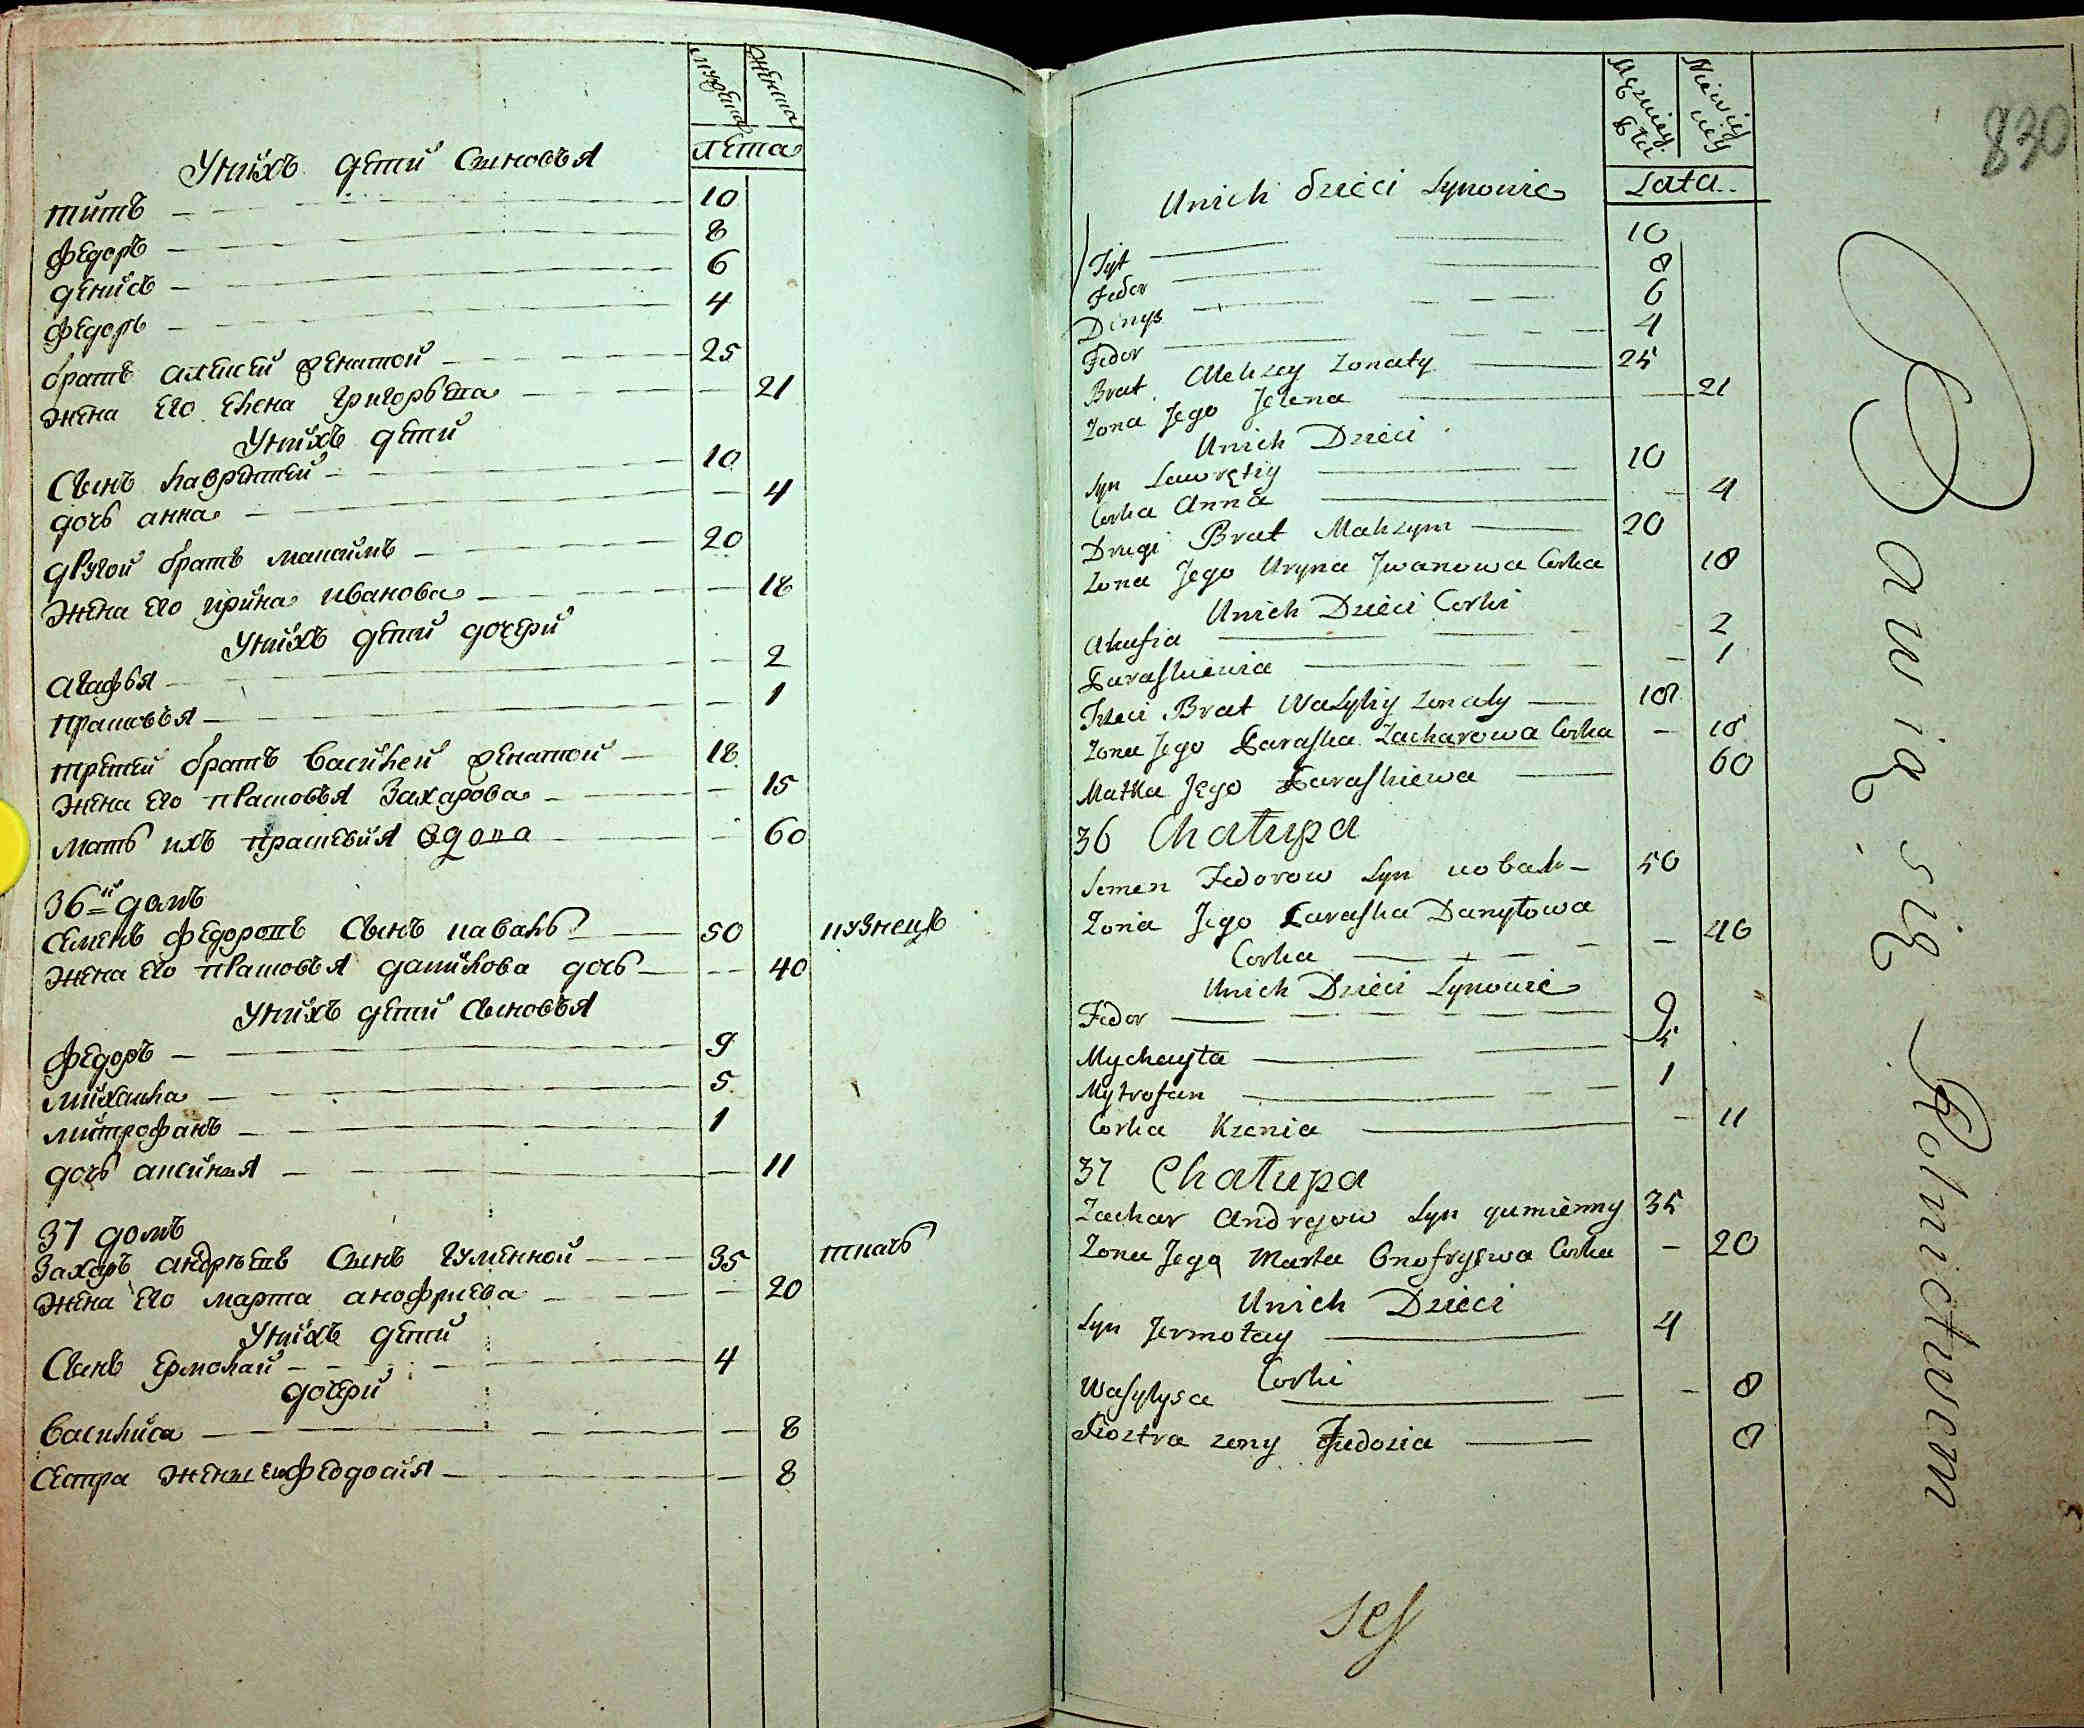 мужеска
женска
лета
У нихъ дети сыновья
титъ 10
федоръ 8
денисъ 6
федоръ 4
братъ алексей женатой 25
жена его елена григорьева 21
У нихъ дети
Сынъ лаврентей 10
дочь анна 4
другой братъ максимъ 20
жена его ирина иванова 18
У нихъ дети дочери
агафья 2
прасковья 1
третей братъ василей женатой 18
жена его прасковья Захарова 15
мать ихъ прасковия вдова 60
36й домъ
семенъ федоровъ Сынъ коваль 50 кузнецъ
жена его прасковья данилова дочь 40
У нихъ дети Сыновья
федоръ 9
михаила 5
митрофанъ 1
дочь аксинья 11
37 домъ
Захаръ андреевъ Сынъ гуменной 35 ткачь
жена его марта анофриева 20
У нихъ дети
Сынъ ермолай 4
дочери
василиса 8
сестра жены ей федосия 8
830
Lata
Unich Dzieci Synowie
Tyt 10
Fedor 8
Denys 6
Fedor 4
Brat Alekzey żonaty 25
Zona Jego Jelena 21
Unich Dzieci
Syn Lawrętiy 10
Corka Anna 4
Drugi Brat Makzym 20
Zona Jego Uryna Jwanowa Corka 18
Unich Dzieci Corki
Ahafia 2
Paraskiewia 1
Trzeci Brat Wasyliy żonaty 18
Zona Jego Paraska Zacharowa Corka 18
Matka Jego Paraskiewa 60
36 Chałupa
Semen Fedorow Syn kowal 50
Zona Jego Paraska Danyłowa 40
Corka
Unich Dzieci Synowie
Fedor 9
Mychayła 5
Mytrofan 1
Corka Kzenia 11
37 Chałupa
Zachar Andreyow Syn gumienny 35
Zona Jego Marta Onofryewa Corka 20
Unich Dzieci
Syn Jermołay 4
Corki
Wasylysa 8
Siostra zony Fedozia 8
Bawią się Rolnictwem